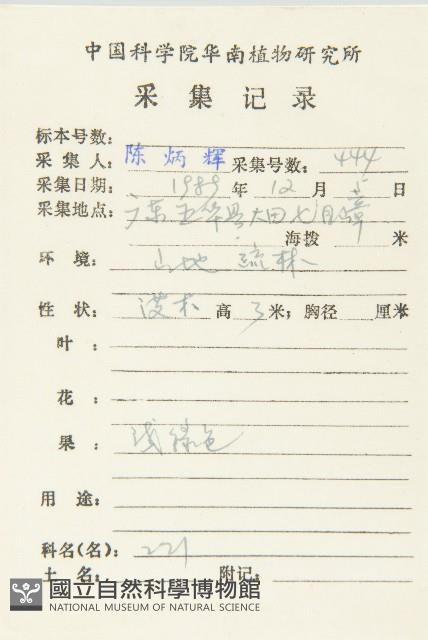 中国科学院华南植物研究所
采集记录
标本号数：
采集人：陈炳辉 采集号数：444
采集日期：1989年12月5日
采集地点：广东五华县大田七目嶂
海拨 米
环境：山地 疏林
性状：灌木 高3米；胸径 厘米
叶：
花：
果：浅绿色
用途：
科名(名)：221
土名： 附记：
國立自然科學博物館
NATIONAL MUSEUM OF NATURAL SCIENCE